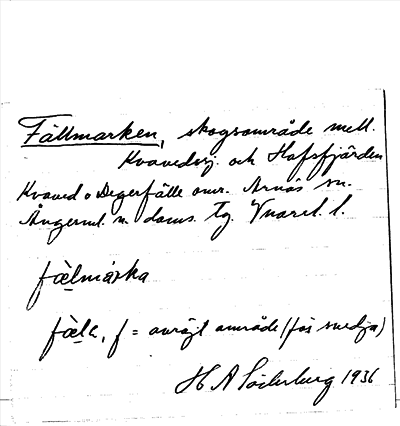 Fällmarken, skogsområde mell.
Kvavedsj. och Hafsfjärden
Kvaved o Degerfälle omr. Arnäs sn.
Ångerml. n. doms. tg. Vnorrl. l.
fæ̀lmárka
fæ̀lа, f = avröjt område (för svedja)
H A Söderberg 1936